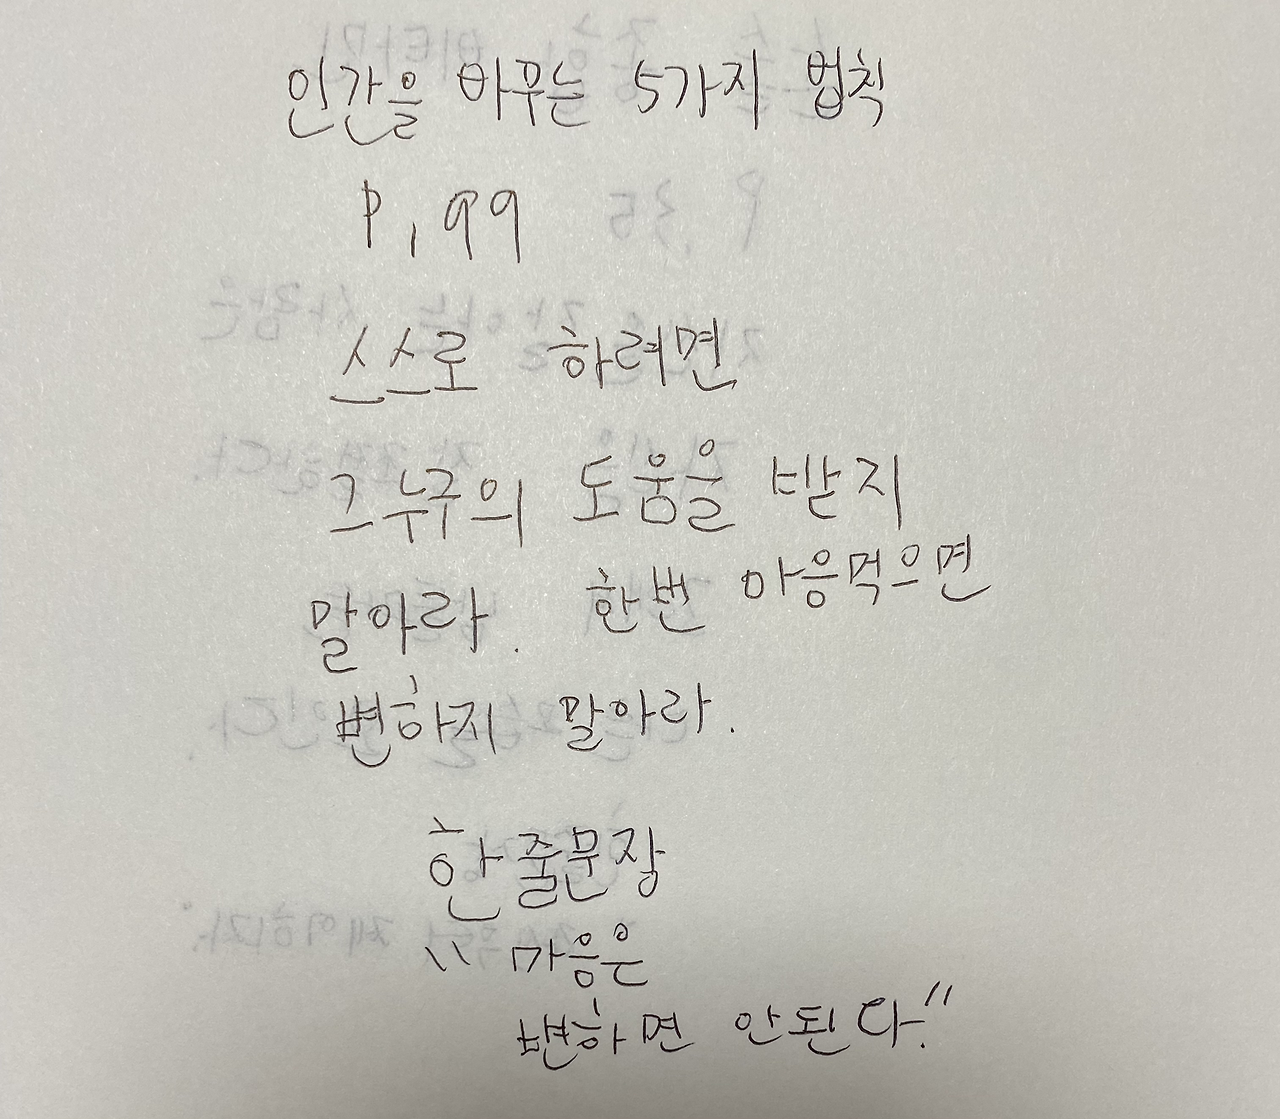 인간을 바꾸는 5가지 법칙
P. 99
스스로 하려면
그 누구의 도움을 받지
말아라. 한번 마음먹으면
변하지 말아라.
한줄문장
"마음은
변하면 안된다."